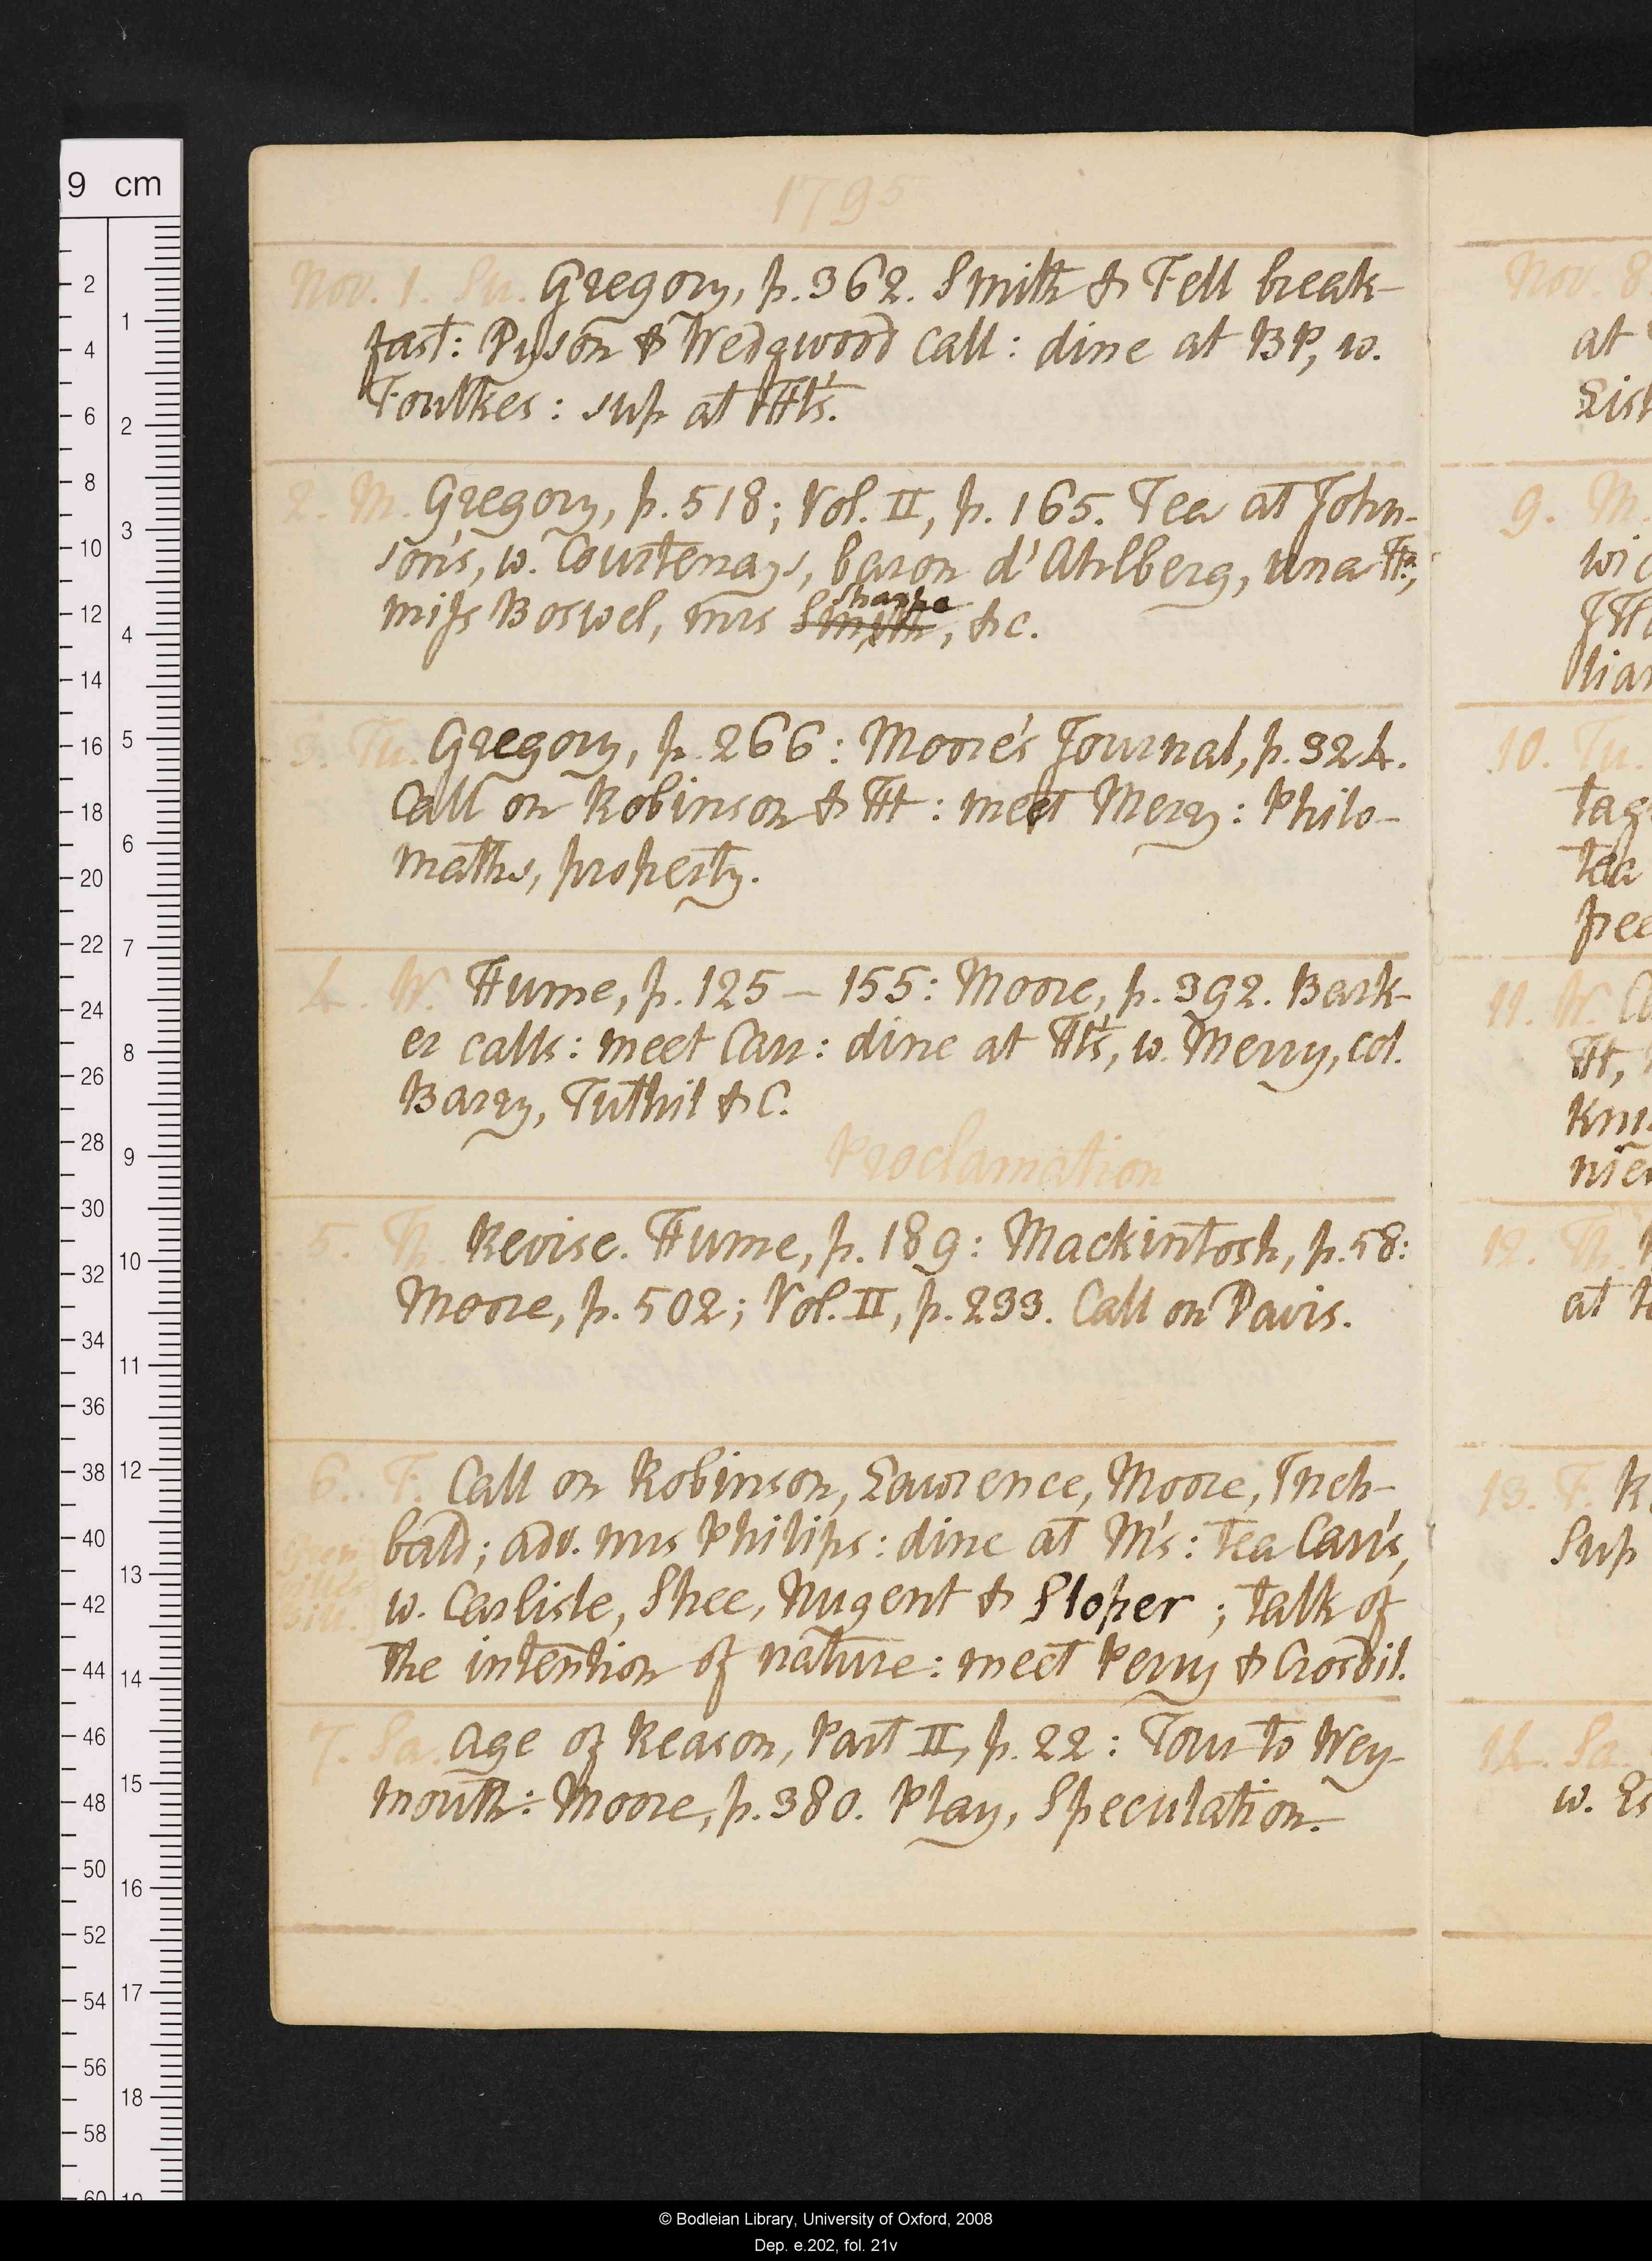 1795
Nov. 1. Su. Gregory, p. 362. Smith & Fell break-
fast: Dyson & Wedgwood call: dine at BP, w.
Foulkes: sup at Ht's.
2. M. Gregory, p. 518; Vol. II, p. 165. Tea at John-
son's, w. Courtenays, baron d'Ahlberg, una Ha,
miss Boswel, mrs Smith sharpe, &c.
3. Tu. Gregory, p. 266: Moore's Journal, p. 324.
Call on Robinson & Ht: meet Merry: Philo-
maths, property.
4. W. Hume, p. 125 – 155: Moore, p. 392. Bark-
er calls: meet Carr: dine at Ht's, w. Merry, col.
Barry, Tuthil & C.
Proclamation
5. Th. Revise. Hume, p. 189: Mackintosh, p. 58:
Moore, p. 502; Vol. II, p. 233. Call on Davis.
6. F. Call on Robinson, Lawrence, Moore, Inch-
bald; adv. mrs Philips: dine at M's: tea Carr's,
w. Carlisle, Shee, Nugent & Sloper; talk of
the intention of nature: meet Perry & Crosdil.
Gren
ville's
bill.
7. Sa. Age of Reason, Part II, p. 22: Tour to Wey-
mouth: Moore, p. 380. Play, Speculation.
Nov. 8
at
9. M.
10. Tu.
tea
free
11. W.
Ht,
12. Th.
at
13. F.
Sup
14. Sa.
w. Es
9 cm
2
4
6
8
10
12
14
16
18
20
22
24
26
28
30
32
34
36
38
40
42
44
46
48
50
52
54
56
58
60
1
2
3
4
5
6
7
8
9
10
11
12
13
14
15
16
17
18
19
© Bodleian Library, University of Oxford, 2008
Dep. e.202, fol. 21v